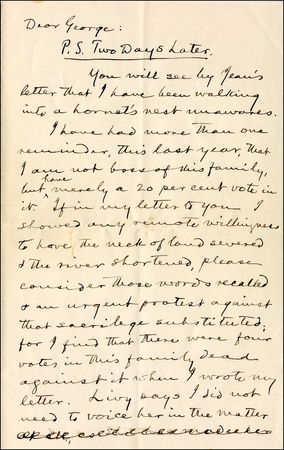 Dear George:
P.S. Two Days Later.
You will see by Jean's
letter that I have been walking
into a hornet's nest unawares.
I have had more than one
reminder, this last year, that
I am not boss of this family,
but have merely a 20 per cent vote in
it. If in my letter to you I
showed any remote willingness
to have the neck of land severed
& the river shortened, please
consider those words recalled
& an urgent protest against
that sacrilege substituted;
for I find that there were four
votes in this family dead
against it when I wrote my
letter. Livy says I did not
need to voice her in the matter
at all, as